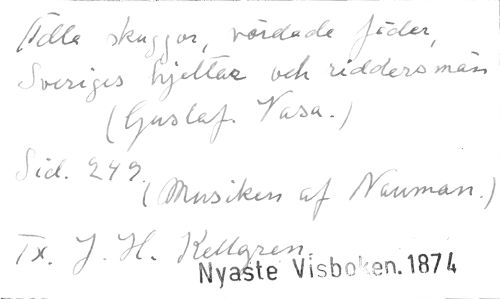 Ädla skuggor, vördade fäder,
Sveriges hjeltar och riddersmän
(Gustaf Vasa.)
Sid. 249.
(Musiken af Nauman.)
Tx. J. H. Kellgren
Nyaste Visboken. 1874